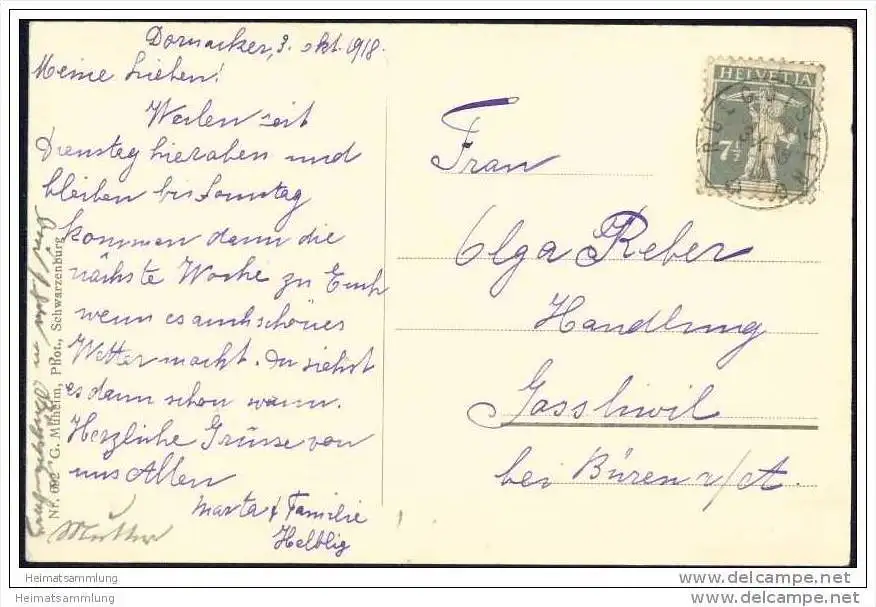 Dornacker, 3. Okt. 1918.
Meine Lieben!
Weilen seit
Dienstag hieroben und
bleiben bis Sonntag
kommen dann die
nächste Woche zu Euch
wenn es auch schönes
Wetter macht. Du siehst
es dann schon wann.
Herzliche Grüsse von
uns Allen
Marta & Familie
Helblig
Mutter
Nr. 692 G. Mülheim, Phot., Schwarzenburg
HELVETIA
7½
Frau
Olga Reber
Handlung
Gossliwil
bei Büren a/A.
Heimatsammlung
Heimatsammlung
su-heimat.de
su-heimat.de